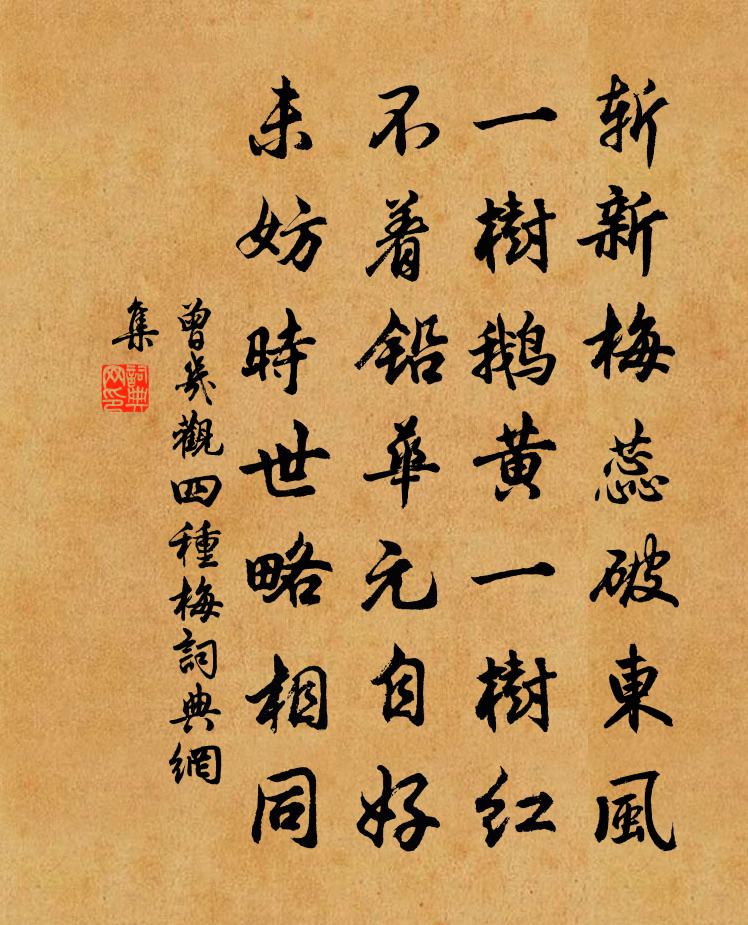 斩新梅蕊破東風
一樹鹅黄一樹红
不着铅華元自好
未妨時世略相同
曾幾觀四種梅詞典網
集
詞典
网印